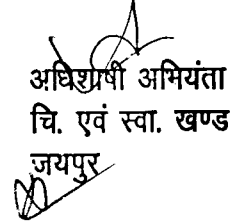 अधिशाषी अभियंता
चि. एवं स्वा. खण्ड
जयपुर